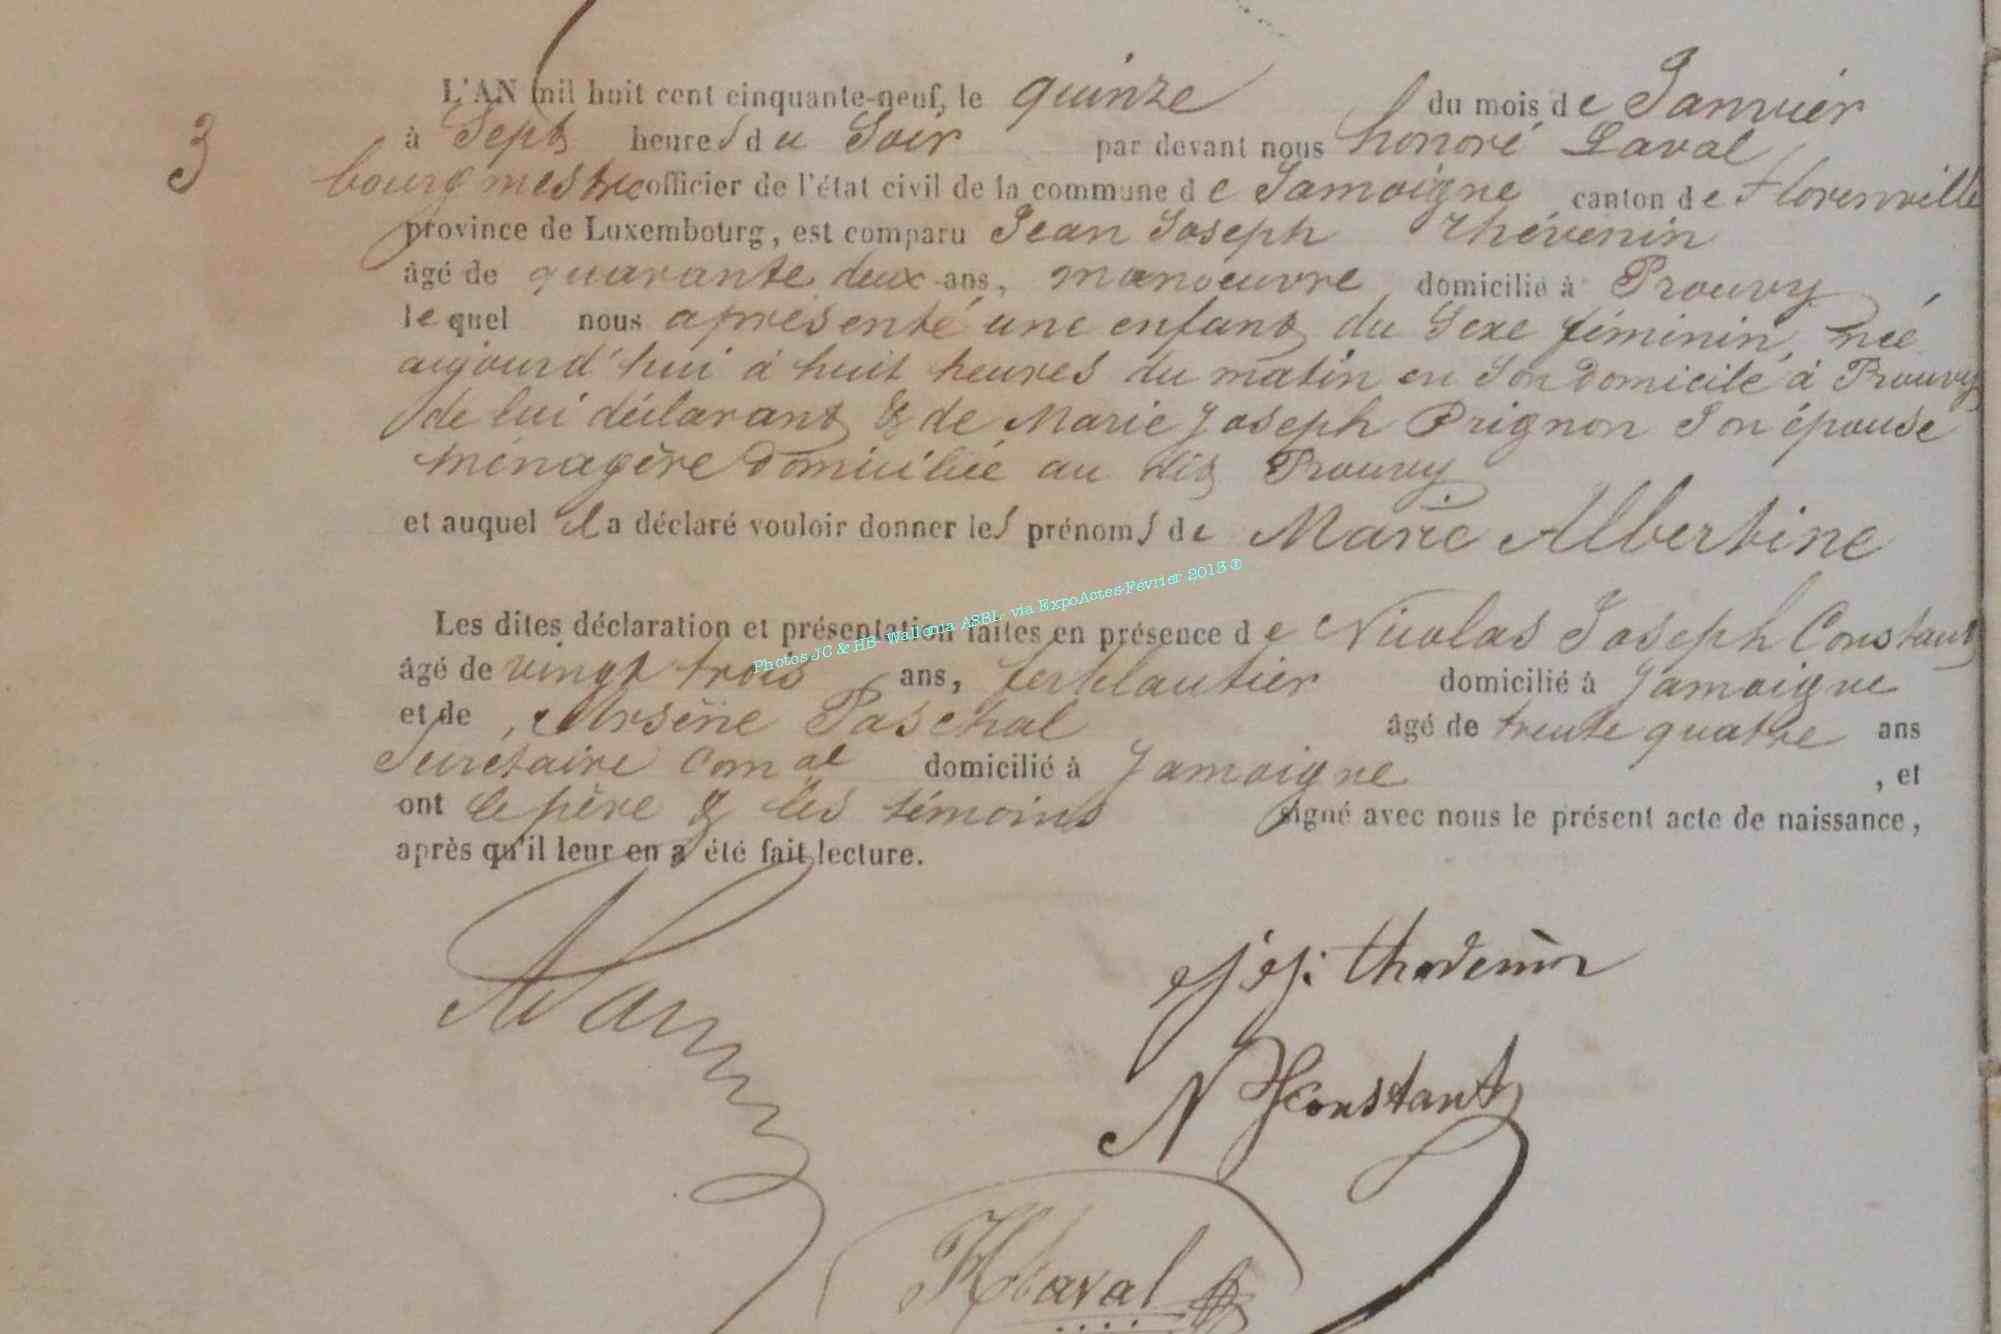 L'AN mil huit cent cinquante-neuf, le quinze du mois de Janvier
3
à Sept heures du Soir par devant nous honoré Laval
bourgmestre officier de l'état civil de la commune de Jamoigne canton de Florenville
province de Luxembourg, est comparu Jean Joseph Thévenin
âgé de quarante deux ans, manoeuvre domicilié à Prouvy
lequel nous a présenté une enfant du Sexe féminin, née
aujourd'hui à huit heures du matin en Son Domicile à Prouvy
de lui déclarant & de Marie Joseph Prignon Son épouse
ménagère Domiciliée au dit Prouvy
et auquel il a déclaré vouloir donner les prénoms de Marie Albertine
Les dites déclaration et présentation faites en présence de Nicolas Joseph Constant
Photos JC & HB Wallonia ASBL via ExpoActes-Février 2013 ®
âgé de vingt trois ans, ferblantier domicilié à Jamoigne
et de Arsène Paschal âgé de trente quatre ans
Secrétaire Com al domicilié à Jamoigne , et
ont le père & les témoins signé avec nous le présent acte de naissance,
après qu'il leur en a été fait lecture.
J. J. thevenin
N J Constant
H Laval